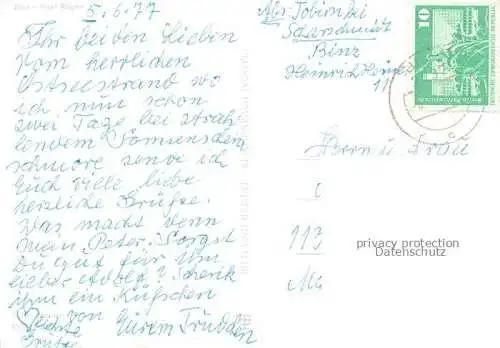 Binz - Insel Rügen
5.6.77
Ihr beiden Lieben
Vom herrlichen
Ostseestrand wo
ich nun schon
zwei Tage bei strah
lendem Sonnenschein
schmore sende ich
Euch viele liebe
herzliche Grüße.
Was macht denn
mein "Peter". Sorgst
Du gut für ihn
lieber Adolf? Schenk
ihm ein Küßchen
von
Herzliche Eurem Trudchen
Grüße
Abs.
Binz
Heinrich Heine
11
10
Herrn u Frau
113
privacy protection
Datenschutz